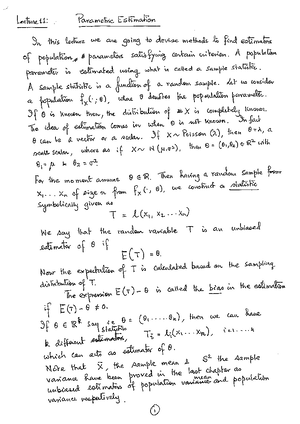 Lecture 11: Parametric Estimation
In this lecture we are going to devise methods to find estimators
of population, parameters satisfying certain criterion. A population
parameter is estimated using what is called a sample statistic.
A sample statistic is a function of a random sample. Let us consider
a population f_X(·, θ), where θ denotes the population parameter.
If θ is known then, the distribution of X is completely known.
The idea of estimation comes in when θ is not known. In fact
θ can be a vector or a scalar. If X ~ Poisson (λ), then θ = λ, a
scalar, where as if X ~ N(μ, σ²), then θ = (θ₁, θ₂) ∈ ℝ² with
θ₁ = μ & θ₂ = σ²
For the moment assume θ ∈ ℝ. Then having a random sample from
X₁, ... Xₙ of size n from f_X(·, θ), we construct a statistic
symbolically given as
T = l(X₁, X₂ ... Xₙ)
We say that the random variable T is an unbiased
estimator of θ if
E(T) = θ.
Now the expectation of T is calculated based on the sampling
distribution of T.
The expression E(T) - θ is called the bias in the estimation
if E(T) - θ ≠ 0.
If θ ∈ ℝᵏ say θ = (θ₁, ... θₖ), then we can have
k different statistics, Tᵢ = lᵢ(X₁, ... Xₙ), i = 1, ... k
which can act as estimator of θ.
Note that X̄, the sample mean & S² the sample
variance have been proved in the last chapter as
unbiased estimators of population mean and population
variance respectively.
1